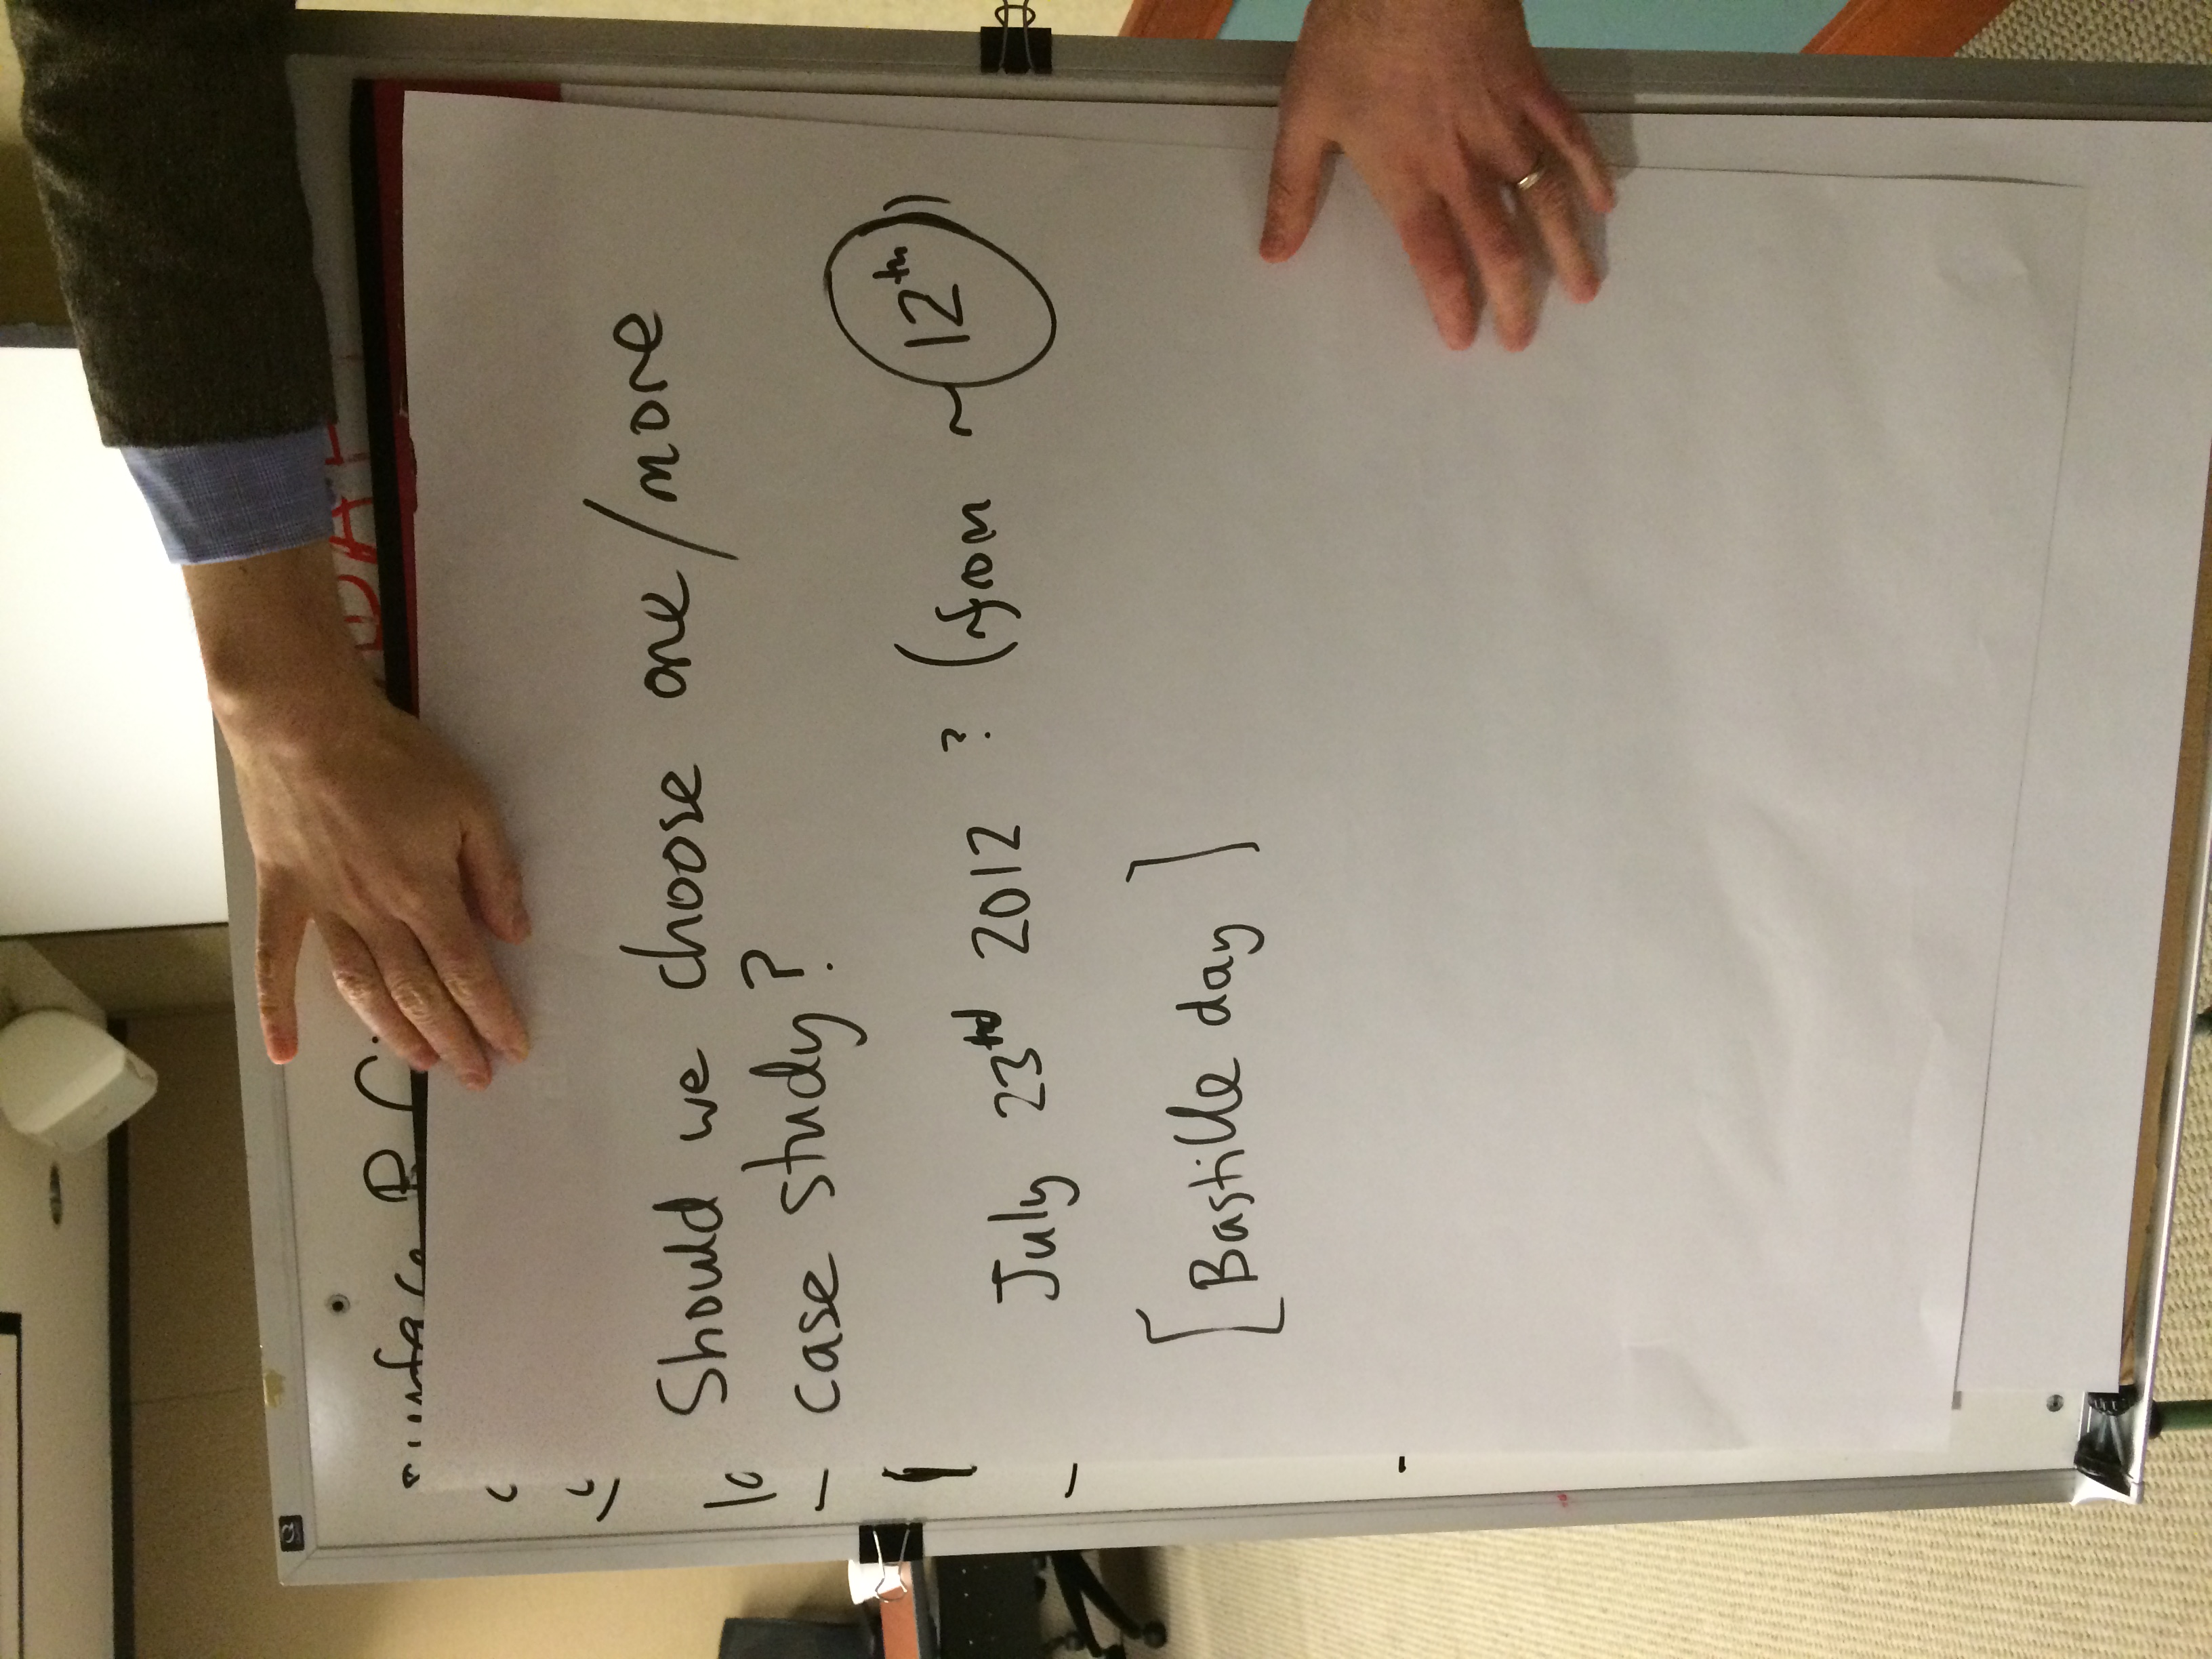 Should we choose one/more
case study?
July 23rd 2012 ? (from ~ 12th))
[Bastille day]